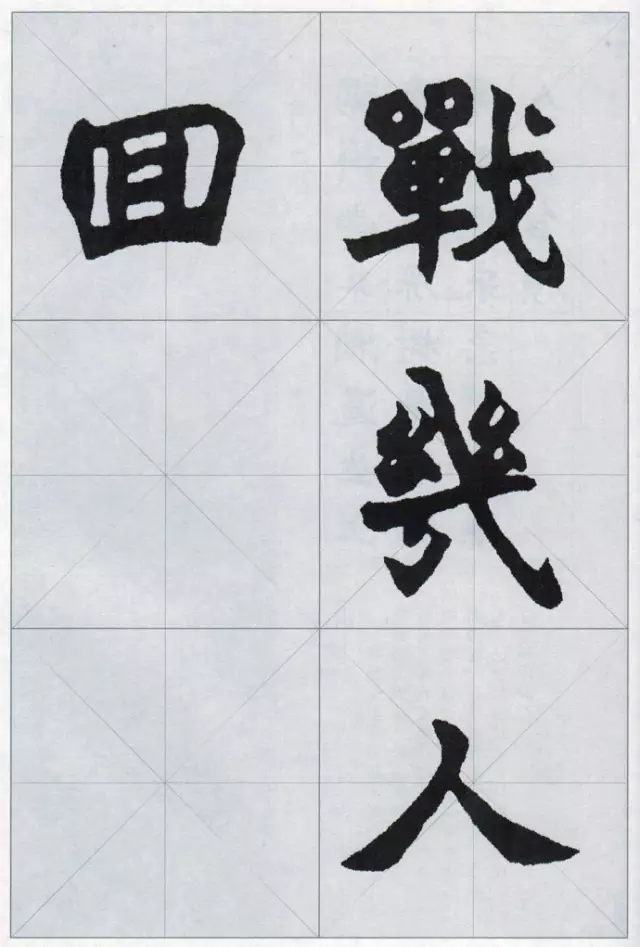 戰幾人
回